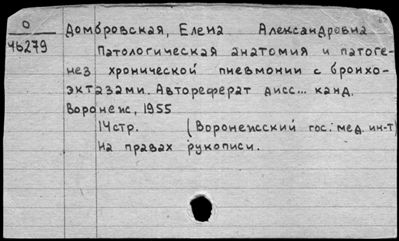 О
46279
Домбровская, Елена Александровна
Патологическая анатомия и патоге-
нез хронической пневмонии с бронхо-
эктазами. Автореферат дисс... канд.
Воронеж, 1955
14стр. (Воронежский гос. мед. ин-т)
На правах рукописи.